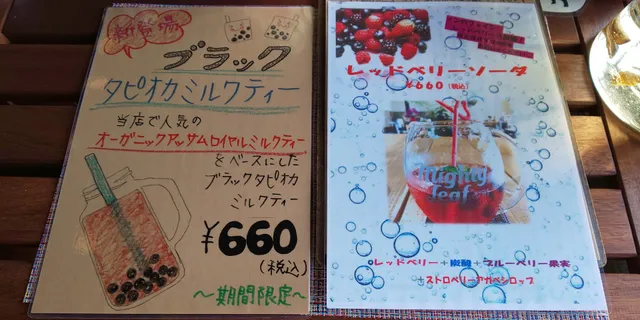 新登場
ブラック
タピオカミルクティー
当店で人気の
オーガニックアッサムロイヤルミルクティー
をベースにした
ブラックタピオカ
ミルクティー
¥660
(税込)
~期間限定~
レッドベリーソーダ
¥660(税込)
Mighty
leaf
レッドベリー+炭酸+ブルーベリー果実
+ストロベリーアガベシロップ